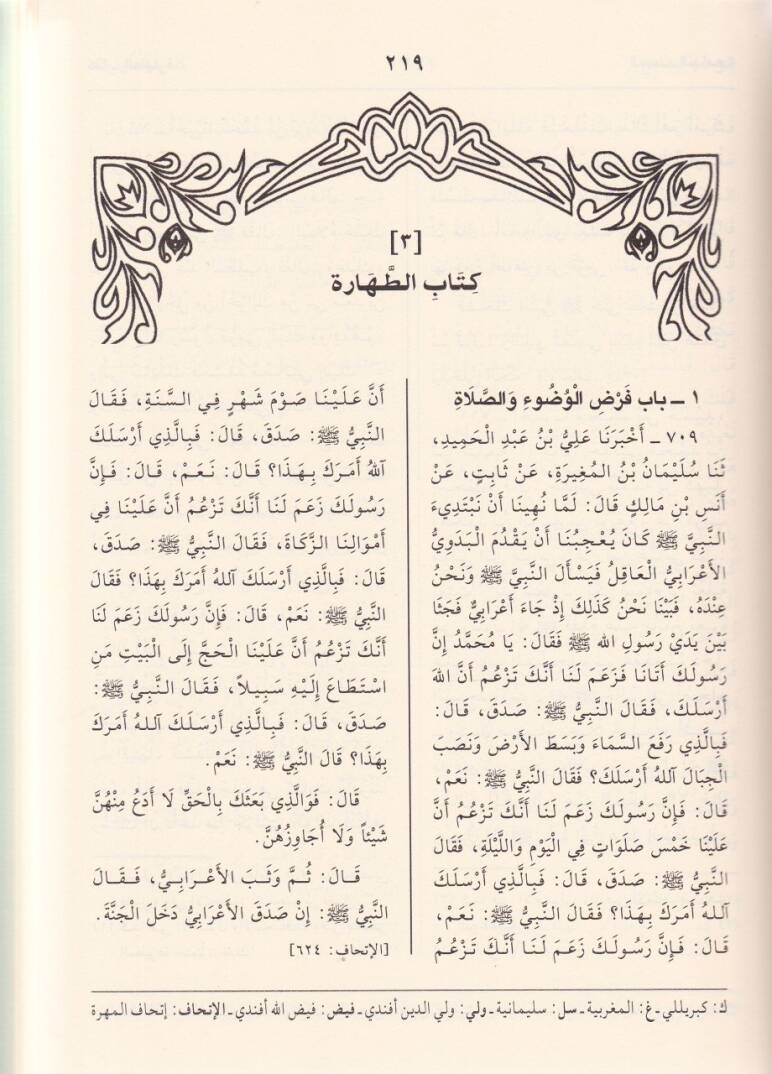 ٢١٩
[٣]
كِتَابِ الطَّهَارة
١ ـ باب فَرْضِ الْوُضُوءِ وَالصَّلَاةِ
٧٠٩ ـ أَخْبَرَنَا عَلِيُّ بْنُ عَبْدِ الْحَمِيدِ،
ثَنَا سُلَيْمَانُ بْنُ المُغِيرَةِ، عَنْ ثَابِتٍ، عَنْ
أَنَسِ بْنِ مَالِكٍ قَالَ: لَمَّا نُهِينَا أَنْ نَبْتَدِيءَ
النَّبِيَّ ﷺ كَانَ يُعْجِبُنَا أَنْ يَقْدُمَ الْبَدَوِيُّ
الأَعْرَابِيُّ الْعَاقِلُ فَيَسْأَلَ النَّبِيَّ ﷺ وَنَحْنُ
عِنْدَهُ، فَبَيْنَا نَحْنُ كَذَلِكَ إِذْ جَاءَ أَعْرَابِيٌّ فَجَثَا
بَيْنَ يَدَيْ رَسُولِ الله ﷺ فَقَالَ: يَا مُحَمَّدُ إِنَّ
رَسُولَكَ أَتَانَا فَزَعَمَ لَنَا أَنَّكَ تَزْعُمُ أَنَّ اللهَ
أَرْسَلَكَ، فَقَالَ النَّبِيُّ ﷺ: صَدَقَ، قَالَ:
فَبِالَّذِي رَفَعَ السَّمَاءَ وَبَسَطَ الأَرْضَ وَنَصَبَ
الْجِبَالَ آللهُ أَرْسَلَكَ؟ فَقَالَ النَّبِيُّ ﷺ: نَعَمْ،
قَالَ: فَإِنَّ رَسُولَكَ زَعَمَ لَنَا أَنَّكَ تَزْعُمُ أَنَّ
عَلَيْنَا خَمْسَ صَلَوَاتٍ فِي الْيَوْمِ وَاللَّيْلَةِ، فَقَالَ
النَّبِيُّ ﷺ: صَدَقَ، قَالَ: فَبِالَّذِي أَرْسَلَكَ
آللهُ أَمَرَكَ بِهَذَا؟ فَقَالَ النَّبِيُّ ﷺ: نَعَمْ،
قَالَ: فَإِنَّ رَسُولَكَ زَعَمَ لَنَا أَنَّكَ تَزْعُمُ
أَنَّ عَلَيْنَا صَوْمَ شَهْرٍ فِي السَّنَةِ، فَقَالَ
النَّبِيُّ ﷺ: صَدَقَ، قَالَ: فَبِالَّذِي أَرْسَلَكَ
آللهُ أَمَرَكَ بِهَذَا؟ قَالَ: نَعَمْ، قَالَ: فَإِنَّ
رَسُولَكَ زَعَمَ لَنَا أَنَّكَ تَزْعُمُ أَنَّ عَلَيْنَا فِي
أَمْوَالِنَا الزَّكَاةَ، فَقَالَ النَّبِيُّ ﷺ: صَدَقَ،
قَالَ: فَبِالَّذِي أَرْسَلَكَ آللهُ أَمَرَكَ بِهَذَا؟ فَقَالَ
النَّبِيُّ ﷺ: نَعَمْ، قَالَ: فَإِنَّ رَسُولَكَ زَعَمَ لَنَا
أَنَّكَ تَزْعُمُ أَنَّ عَلَيْنَا الْحَجَّ إِلَى الْبَيْتِ مَنِ
اسْتَطَاعَ إِلَيْهِ سَبِيلاً، فَقَالَ النَّبِيُّ ﷺ:
صَدَقَ، قَالَ: فَبِالَّذِي أَرْسَلَكَ آللهُ أَمَرَكَ
بِهَذَا؟ قَالَ النَّبِيُّ ﷺ: نَعَمْ.
قَالَ: فَوَالَّذِي بَعَثَكَ بِالْحَقِّ لَا أَدَعُ مِنْهُنَّ
شَيْئاً وَلَا أُجَاوِزُهُنَّ.
قَالَ: ثُمَّ وَثَبَ الأَعْرَابِيُّ، فَقَالَ
النَّبِيُّ ﷺ: إِنْ صَدَقَ الأَعْرَابِيُّ دَخَلَ الْجَنَّةَ.
[الإتحاف: ٦٢٤]
ك: كبريللي ـ غ: المغربية ـ سل: سليمانية ـ ولي: ولي الدين أفندي ـ فيض: فيض الله أفندي ـ الإتحاف: إتحاف المهرة